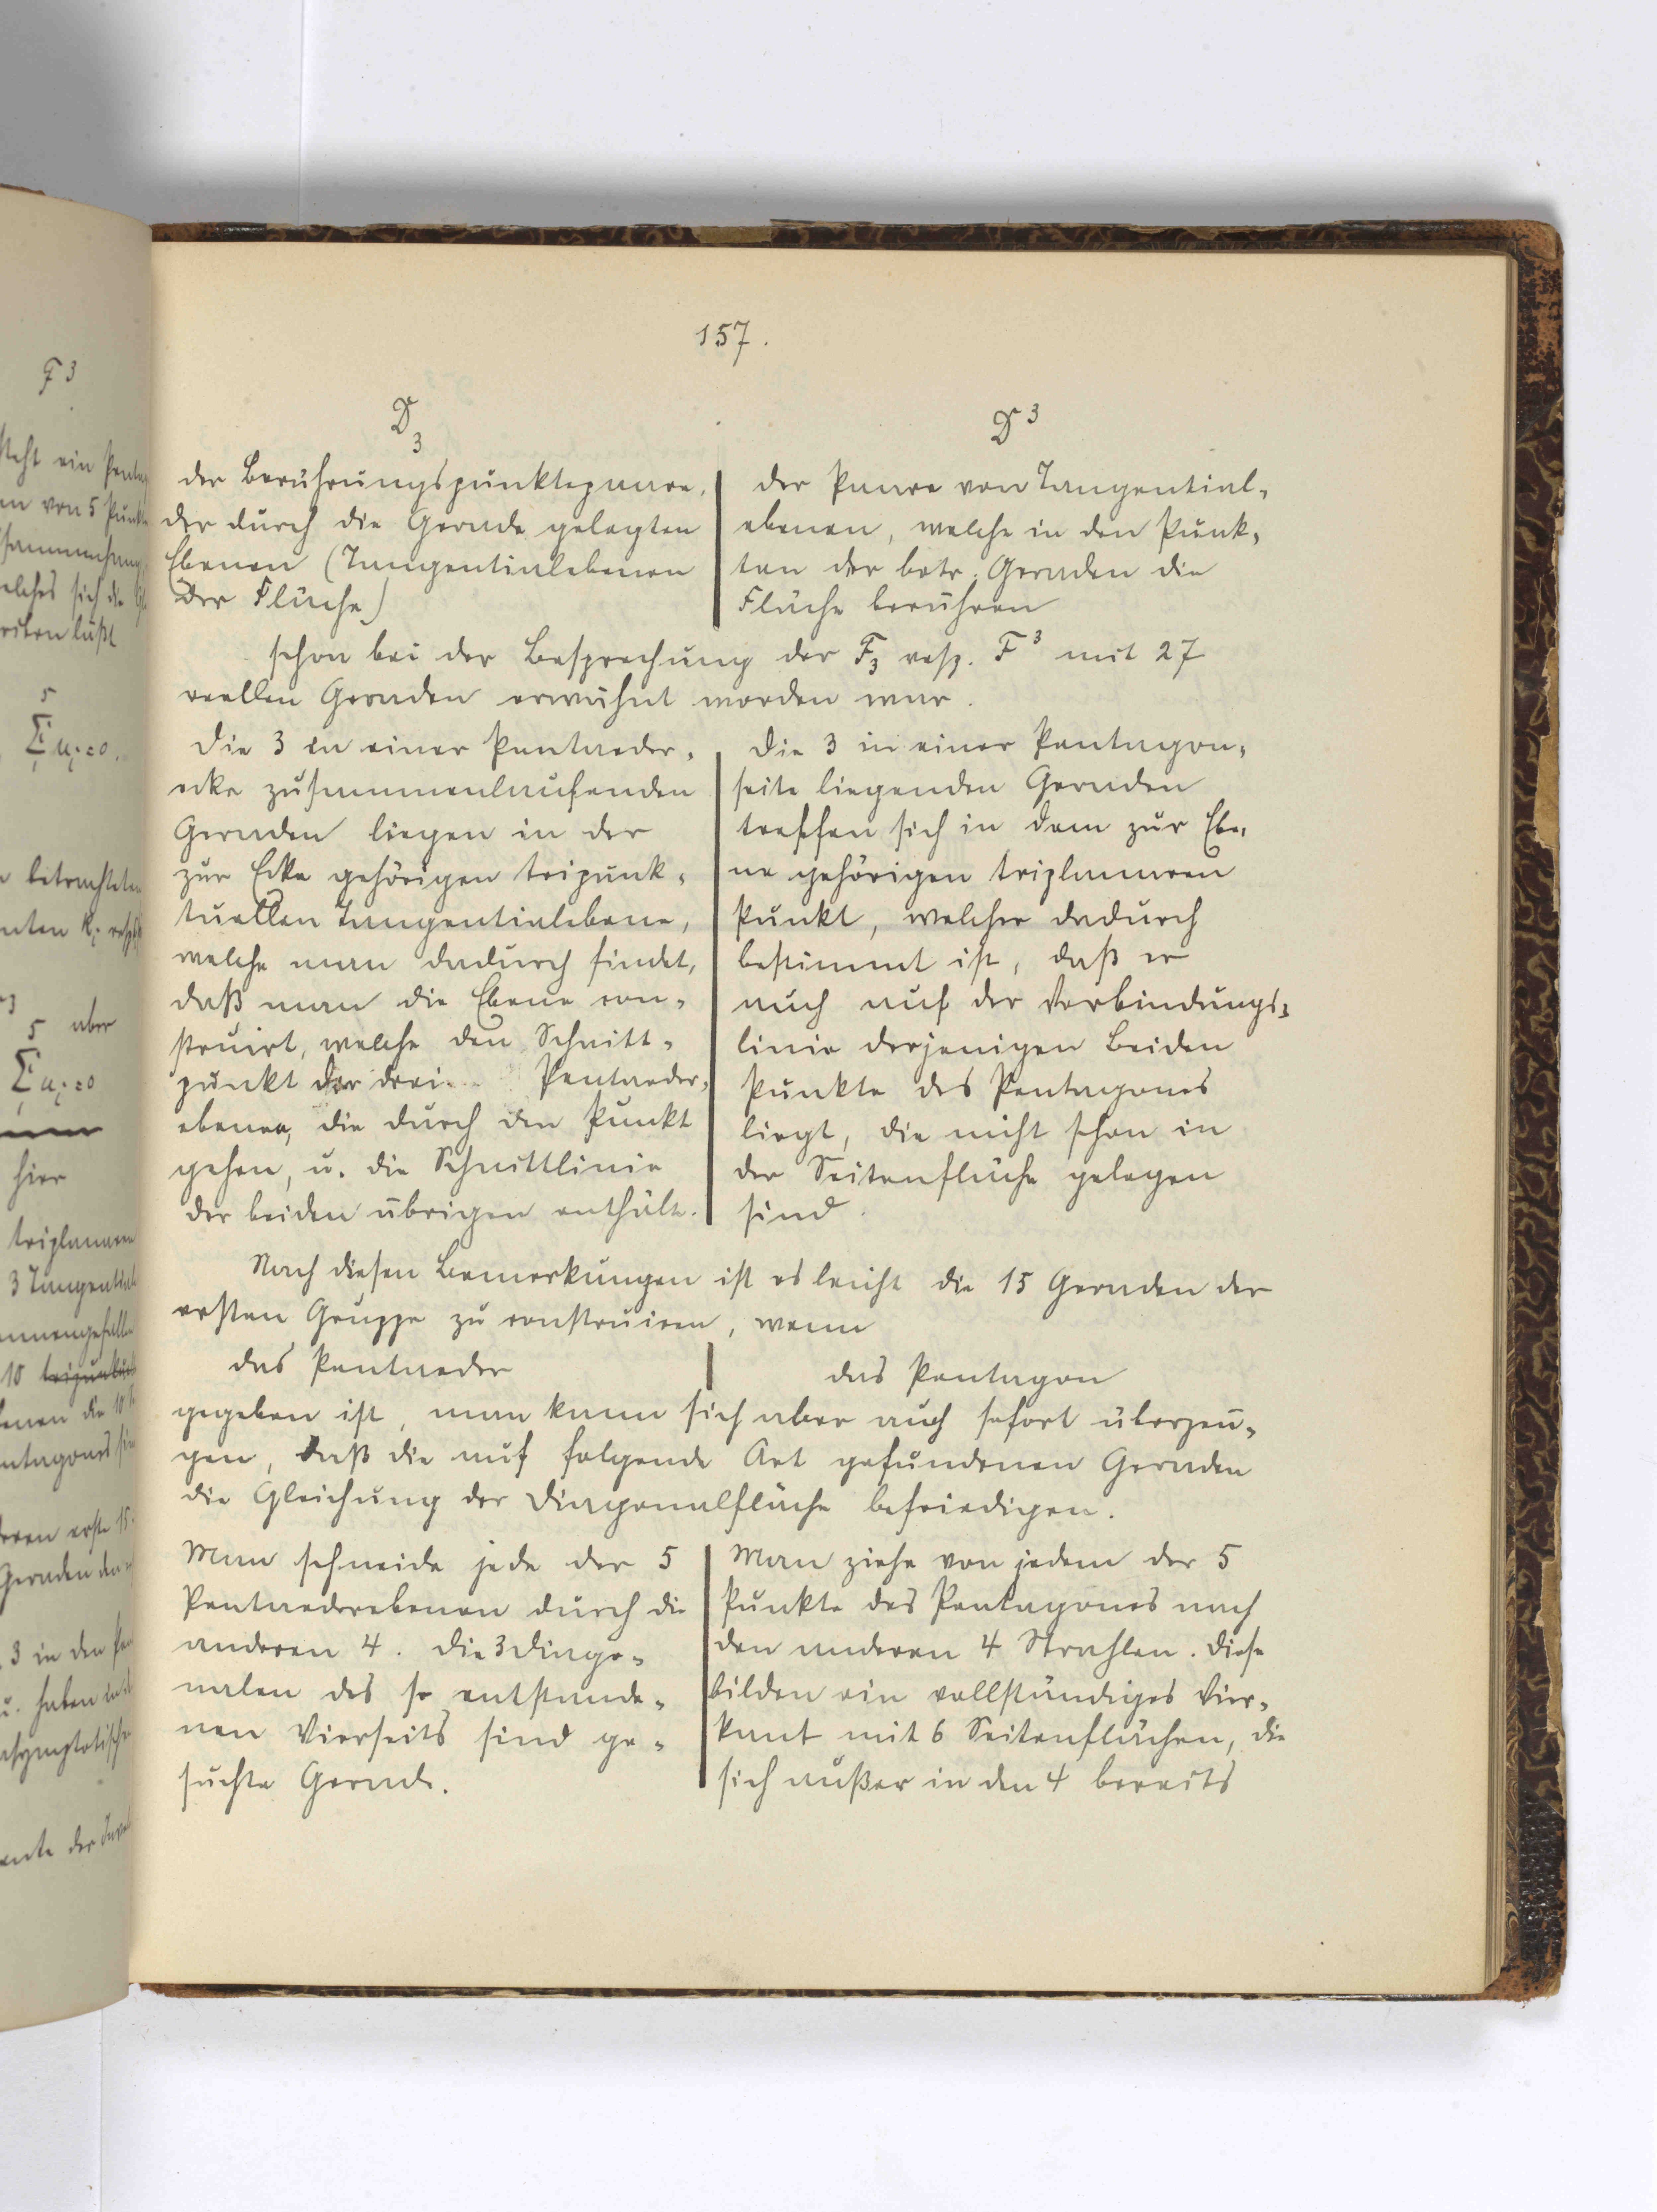 157.
D₃
der Berührungspunktepaare,
der durch die Gerade gelegten
Ebenen (Tangentialebenen
der Fläche)
D³
der Paare von Tangential-
ebenen, welche in den Punk-
ten der betr. Geraden die
Fläche berühren
schon bei der Besprechung der F₃ resp. F³ mit 27
reellen Geraden erwähnt worden war.
Die 3 in einer Pentaeder-
ecke zusammenlaufenden
Geraden liegen in der
zur Ecke gehörigen tripunk-
tuellen Tangentialebene,
welche man dadurch findet,
daß man die Ebene con-
struirt, welche den Schnitt-
punkt der drei Pentaeder-
ebenen, die durch den Punkt
gehen, u. die Schnittlinie
der beiden übrigen enthält.
Die 3 in einer Pentagon-
seite liegenden Geraden
treffen sich in dem zur Ebe-
ne gehörigen triplanaren
Punkt, welcher dadurch
bestimmt ist, daß er
auch auf der Verbindungs-
linie derjenigen beiden
Punkte des Pentagones
liegt, die nicht schon in
der Seitenfläche gelegen
sind.
Nach diesen Bemerkungen ist es leicht die 15 Geraden der
ersten Gruppe zu construiren, wenn
das Pentaeder
das Pentagon
gegeben ist, man kann sich aber auch sofort überzeu-
gen, daß die auf folgende Art gefundenen Geraden
die Gleichung der Diagonalfläche befriedigen.
Man schneide jede der 5
Pentaederebenen durch die
anderen 4. Die 3 Diago-
nalen des so entstande-
nen Vierseits sind ge-
suchte Gerade.
Man ziehe von jedem der 5
Punkte des Pentagones nach
den anderen 4 Strahlen. Diese
bilden ein vollständiges Vier-
kant mit 6 Seitenflächen, die
sich außer in den 4 bereits